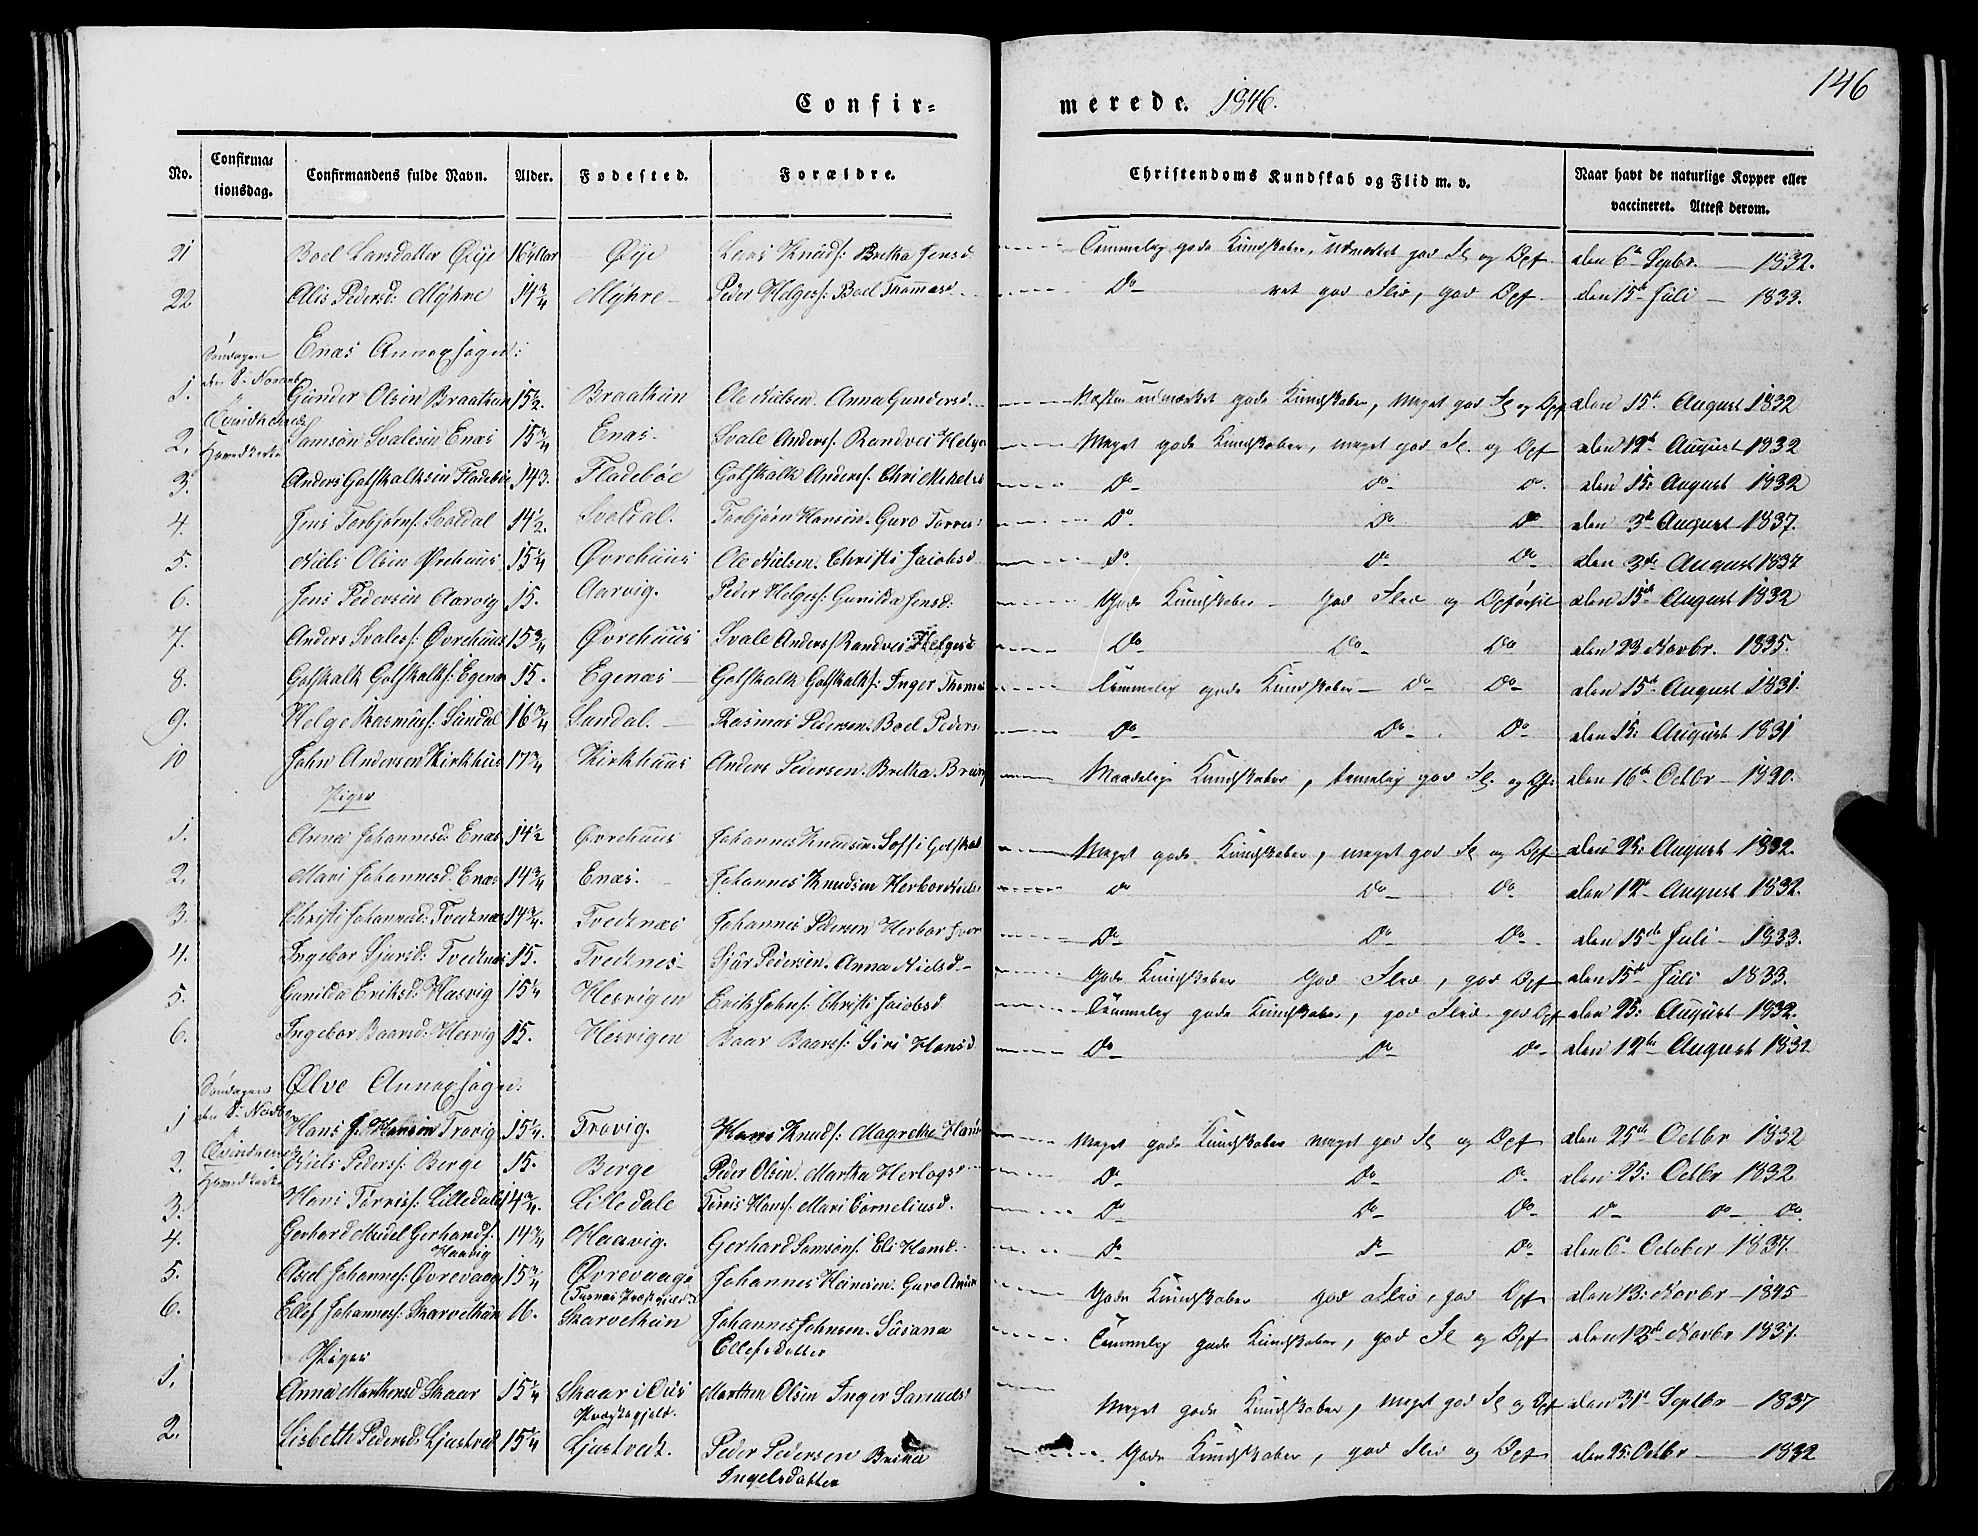 146
Confir- merede. 1846.
No. Confirmationsdag. Confirmandens fulde Navn. Alder. Fødested. Forældre. Christendoms Kundskab og Flid m. v. Naar havt de naturlige Kopper eller vaccineret. Attest derom.
21 Boel Larsdatter Øye 16 Øye Lars Knuds: Bretha Jensd Temmelig gode Kundskaber, udmærket god Fl og Opf den 6te Septbr. 1832.
22 Alis Pedersd: Myhre 14 3/4 Myhre Peder Helges: Boel Thomasd Do ret god Flid, god Opf den 15de Juli 1833.
Enæs Annexsogn:
Søndagen den 8: Novemb
Qvindherreds Hovedkirke
1. Gunder Olsen Braathun 15 1/2. Braathun Ole Nielsen. Anna Gundersd. Næsten udmærket gode Kundskaber, meget god Fl og Opf den 15de August 1832
2. Samson Svalesen Enæs 15 3/4 Enæs. Svale Anders: Randvei Helge Meget gode Kundskaber, meget god Fl. og Opf den 12te August 1832
3. Anders Gotskalksen Fladebøe 14 3. Fladebøe Gotskalk Anders: Chri Mikels Do do do. den 15: August 1832
4. Jens Torbjørns: Svoldal 14 1/2. Svoldal. Torbjørn Hansen. Guro Torres Do. Do Do den 3de August 1837.
5. Niels Olsen Øvrehuus 15 1/4 Øvrehuus Ole Nielsen. Christi Jacobsd Do. Do Do den 3de August 1837
6. Jens Pedersen Aarvig 15. Aarvig. Peder Helges: Gunilda Jensd: Gode Kundskaber god Flid og Opførsel den 15de August 1832
7. Anders Svales: Øvrehuus 15 3/4 Øvrehuus Svale Anders: Randvei Helgesd Do Do Do den 23 Novbr. 1835.
8. Gotskalk Gotskalks: Egenæs 15. Egenæs Gotskalk Gotskalks: Inger Thomas Temmelig gode Kundskaber Do Do den 15de August 1831.
9. Helge Rasmus: Sundal 16 3/4 Sundal. Rasmus Pedersen. Boel Peders: Do Do Do den 15: August 1831
10 John Andersen Kirkhuus 17 3/4 Kirkhuus Anders Pedersen. Bretha Maadelige Kundskaber, temelig god Fl. og Opf. den 16de Octbr 1830.
Piger
1. Anna Johannesd: Enæs 14 1/2 Øvrehuus Johannes Knudsen. Soffi Gotskal Meget gode Kundskaber, meget god Fl og Opf den 25: August 1832.
2. Mari Johannesd. Enæs 14 3/4 Enæs. Johannes Knudsen Herbor do Do Do den 12te August 1832.
3. Christi Johannesd: Tvednæs 14 3/4. Tvednæs Johannes Pedersen Herbor Do Do Do den 15de Juli 1833.
4. Ingebor Sjursd: Tvednæs 15. Tvednes Sjur Pedersen. Anna Nielsd. Gode Kundskaber god Flid, god Opf den 15de Juli 1833.
5. Gunilda Eriksd: Hæsvig 15 1/4 Hesvigen Erik Johns: Christi Jacobsd Temmelig gode Kundskaber, god Flid god Opf den 25: August 1832.
6. Ingebor Baarsd: Hesvig 15. Hesvigen Baar Baars: Siri Hansd Do Do Do den 12te August 1832
Ølve Annexsogn:
Søndagen den 8: Novbr
Qvindherreds Hovedkirke
1 Hans J. Hansen Trovig 15 1/4. Trovig. Hans Knuds: Magrethe Hans Meget gode Kundskaber meget god Fl og Opf den 25de Octbr 1832
2. Niels Peders: Berge 15. Berge Peder Olsen. Martha Herlogsd Do Do Do den 25: Octbr 1832
3. Hans Tørris: Lilledale 14 3/4. Lilledale Tørris Hans: Mari Corneliusd. Do Do Do Do do do.
4. Gerhard Gerhards: Haavig 14 3/4 Haavig. Gerhard Samsons: Eli Hansd. Do Do Do den 6te October 1837.
5. Johannes: Øvrevaage 15 3/4 Øvrevaage Johannes Guro Gode Kundskaber god Flid, god Opf den 13: Novbr 1845
6. Ellef Johannes: Skarvethun 16. Skarvethun Johannes Johnsen. Susana Ellefsdatter Temmelig gode Kundskaber, god Fl og Opf den 12te Novbr 1837.
Piger
1. Anna Marthensd Skaar 15 1/4 Skaar i Præstegjeld. Marthen Olsen Inger Samuels Meget gode Kundskaber, meget god Fl og Opf den 31te Septbr 1837
2. Lisbeth Pedersd. Ljustvedt 15 1/4 Ljustvedt. Peder Pedersen Britha Ingelsdatter Gode Kundskaber, god Flid og Opf den 25: Octbr 1832